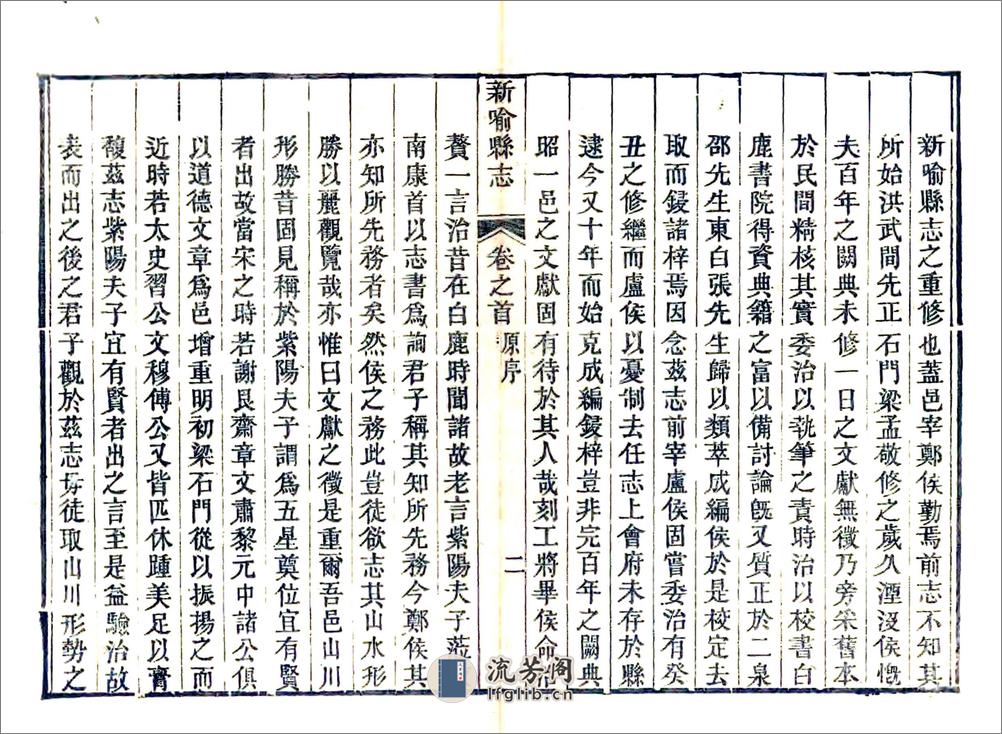 新喻縣志之重修也蓋邑宰鄭侯勤焉前志不知其
所始洪武間先正石門梁孟敬修之歲久湮沒侯慨
夫百年之闕典未修一日之文獻無徵乃旁采舊本
於民間精核其實委治以執筆之責時治以校書白
鹿書院得資典籍之富以備討論旣又質正於二泉
邵先生東白張先生歸以類萃成編侯於是校定去
取而鋟諸梓焉因念兹志前宰盧侯固嘗委治有癸
丑之修繼而盧侯以憂制去任志上會府未存於縣
逮今又十年而始克成編鋟梓豈非完百年之闕典
昭一邑之文獻固有待於其人哉刻工將畢侯命
新喻縣志 卷之首 原序 二
贅一言治昔在白鹿時聞諸故老言紫陽夫子蒞
南康首以志書爲詢君子稱其知所先務今鄭侯其
亦知所先務者矣然侯之務此豈徒欲志其山水形
勝以麗觀覽哉亦惟曰文獻之徵是重爾吾邑山川
形勝昔固見稱於紫陽夫子謂爲五星奠位宜有賢
者出故當宋之時若謝艮齋章文肅黎元中諸公俱
以道德文章爲邑增重明初梁石門從以振揚之而
近時若太史習公文穆傅公又皆匹休踵美足以膏
馥兹志紫陽夫子宜有賢者出之言至是益驗治故
表而出之後之君子觀於兹志毋徒取山川形勢之
流芳阁
lfglib.cn